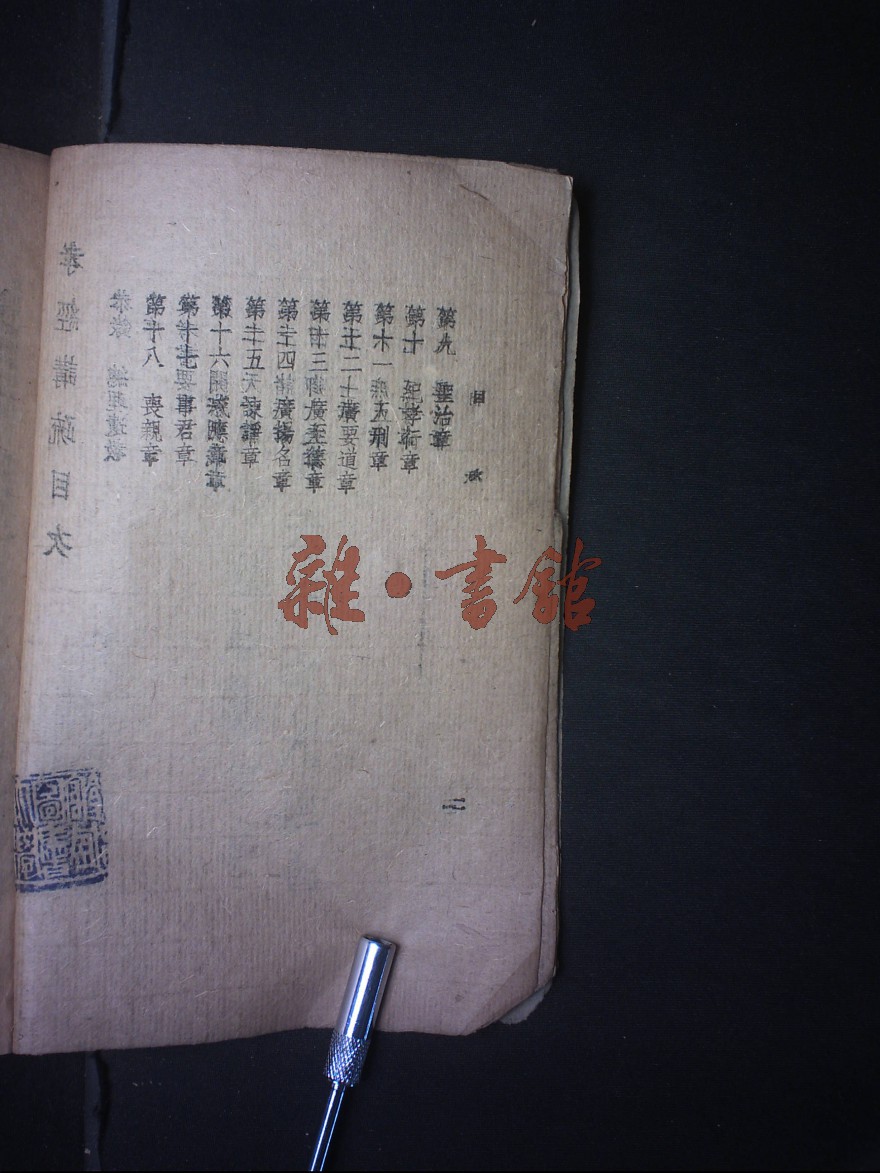 目次
二
第九 聖治章
第十 紀孝行章
第十一 五刑章
第十二 廣要道章
第十三 廣至德章
第十四 廣揚名章
第十五 諫諍章
第十六 感應章
第十七 事君章
第十八 喪親章
恭錄 總理遺教
孝經講疏目次
雜·書館